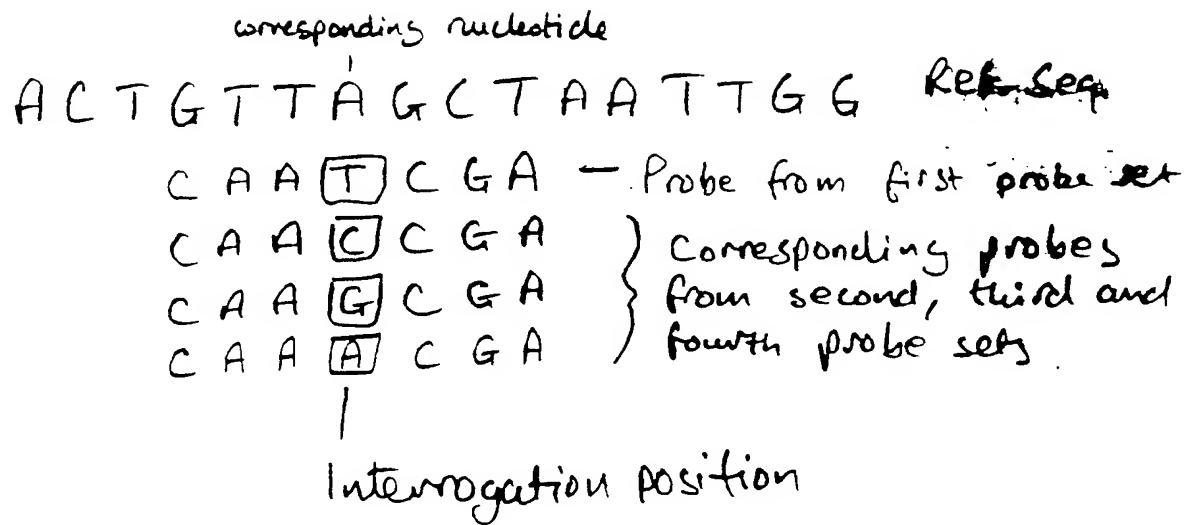 corresponding nucleotide
A C T G T T A G C T A A T T G G Ref. Seq
C A A T C G A - Probe from first probe set
C A A C C G A Corresponding probes
C A A G C G A from second, third and
C A A A C G A fourth probe sets.
Interrogation position